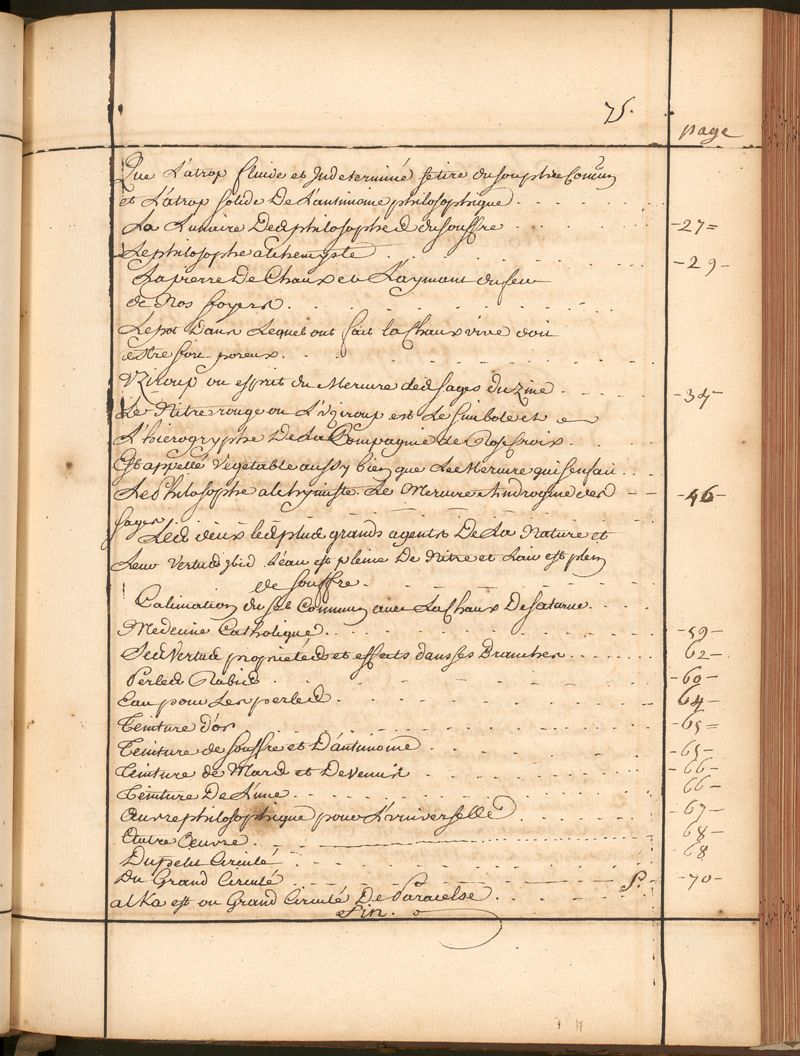 75.
page
Que L'atrop fluide et Indeterminé se tire du souphre Comũn
et L'atrop solide De L'antimoine philosophique
La Lunaire Des philosophes du souffre -27=
Le philosophe alchemyste -29-
La pierre De Chaux et L'aymant du feu
de Nos foyers
Le pot Dans Lequel ont fait la Chaux vive doit
estre fort poreux
Vziroup ou esprit du Mercure des sages du Zine -34-
Le Nitre rouge ou L'vziroup est Le simbole et
L'hierogryphe De La Compagnie de Rose Croix
Est appellé vegetable aussy bien que Le Mercure qui s'en fait
Le Philosophe alchymiste Le Mercure Androgine des -46-
sages
Les deux les plus grands agents De La Nature et
Leur vertus ibid L'eau est pleine De Nitre et L'air est plein
de souffre
Calination du sel Commun avec La Chaux De saturne
Medecine Catholique -59-
Ses vertus proprietés et effects dans ses Branches 62-
Perles Rubis -60-
Eau pour Les perles 64
Teinture d'or -65=
Teinture de souffre et D'antimoine -65-
Teinture de Mars et De venus -66-
Teinture De L'une 66-
Œuvre philosophique pour L'vniverselle -67-
Autre Œuvre 68-
Du petit Circulé 68
Du Grand Circulé P. -70-
alKaest ou Grand Circulé De Paracelse
Fin.